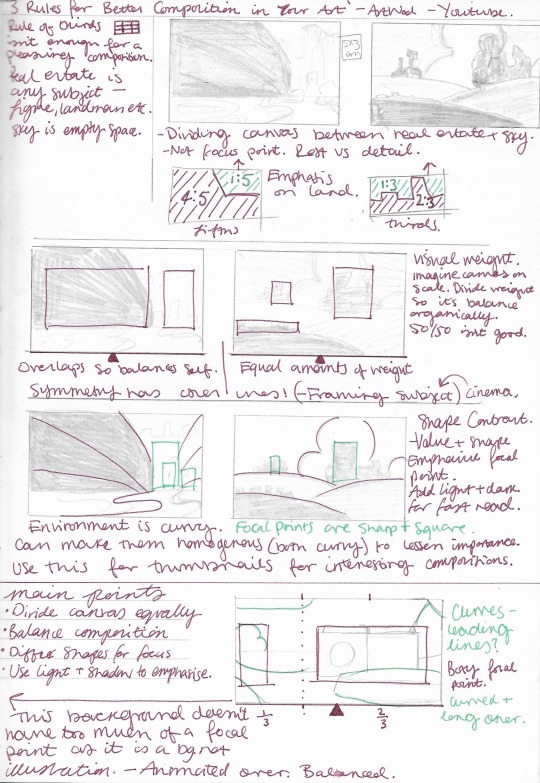 3 Rules for Better Composition in Your Art - ArtWod - Youtube.
Rule of thirds
isn't enough for a
pleasing composition.
Real estate is
any subject -
figure, landmark etc.
Sky is empty space.
5x3
cm
-Dividing canvas between real estate + sky.
-Not focus point. Rest vs detail.
4:5
1:5
Emphasis
on land.
1:3
2:3
fifths
thirds.
Visual weight.
Imagine canvas on
scale. Divide weight
so it's balance
organically.
50/50 isn't good.
Overlaps so balances self.
Equal amounts of weight
Symmetry has cover lines! (-Framing subject) cinema.
Shape Contrast.
-Value + shape
Emphasise focal
point.
Add light + dark
for fast read.
Environment is curvy. Focal Points are Sharp + Square.
Can make them homogenous (both curvy) to lessen importance.
Use this for thumbnails for interesting compositions.
main points
• Divide canvas equally
• Balance composition
• Differ shapes for focus
• Use light + shadow to emphasise.
Curves-
leading
lines?
Boxy focal
point.
curved +
long over.
1/3
2/3
This background doesn't
have too much of a focal
point as it is a bg not
illustration. - Animated over. Balanced.